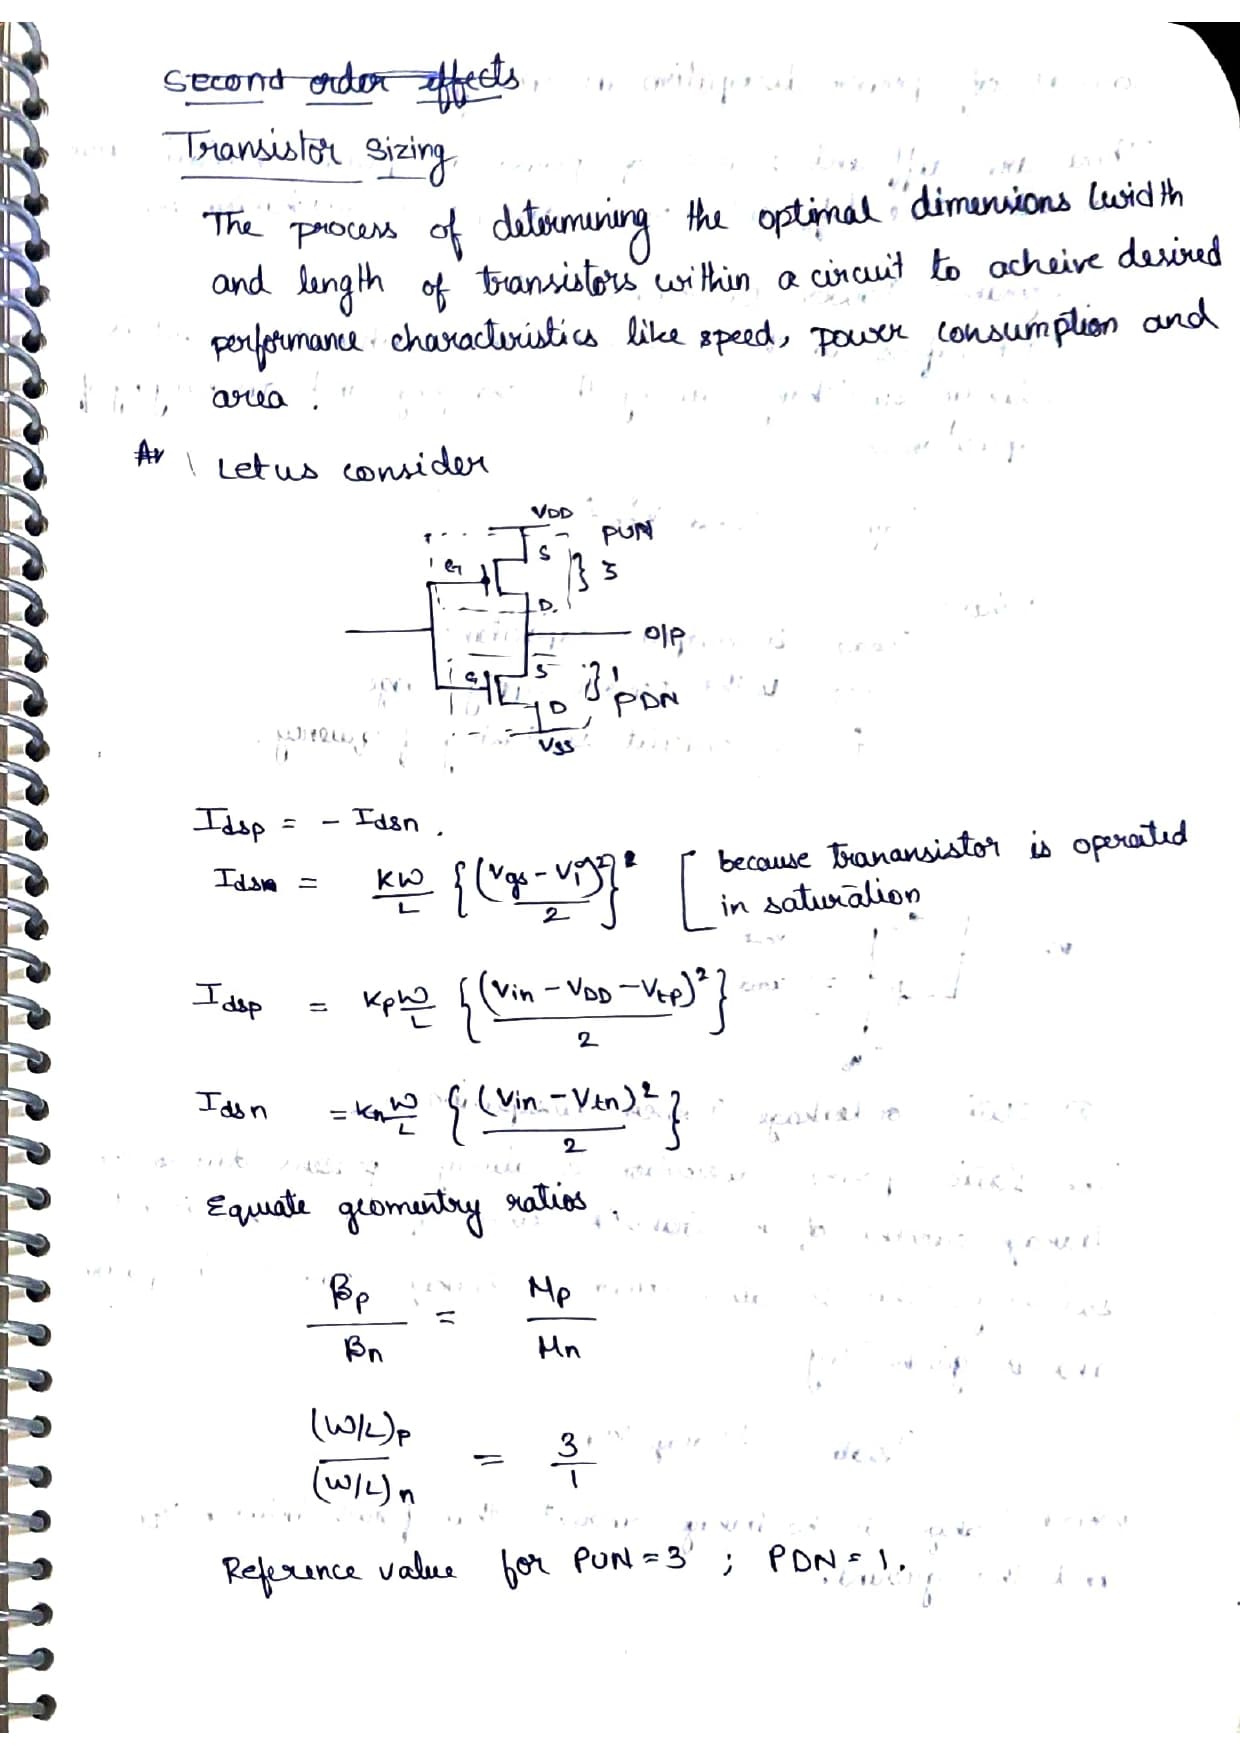 Second order effects
Transistor Sizing
The process of determining the optimal dimensions (width
and length of transistors within a circuit to acheive desired
performance characteristics like speed, power consumption and
area.
Let us consider
VDD
PUN
S
G
3
D
O/P
S
G
1
D
PDN
VSS
Idsp = - Idsn.
Ids = KW/L {(Vgs - Vt)²/2} [because tranansistor is operated
in saturation
Idsp = KpW/L {(Vin - VDD - Vtp)²/2}
Idsn = KnW/L {(Vin - Vtn)²/2}
Equate geomentry ratios.
βp/βn = μp/μn
(W/L)p/(W/L)n = 3/1
Reference value for PUN = 3 ; PDN = 1.